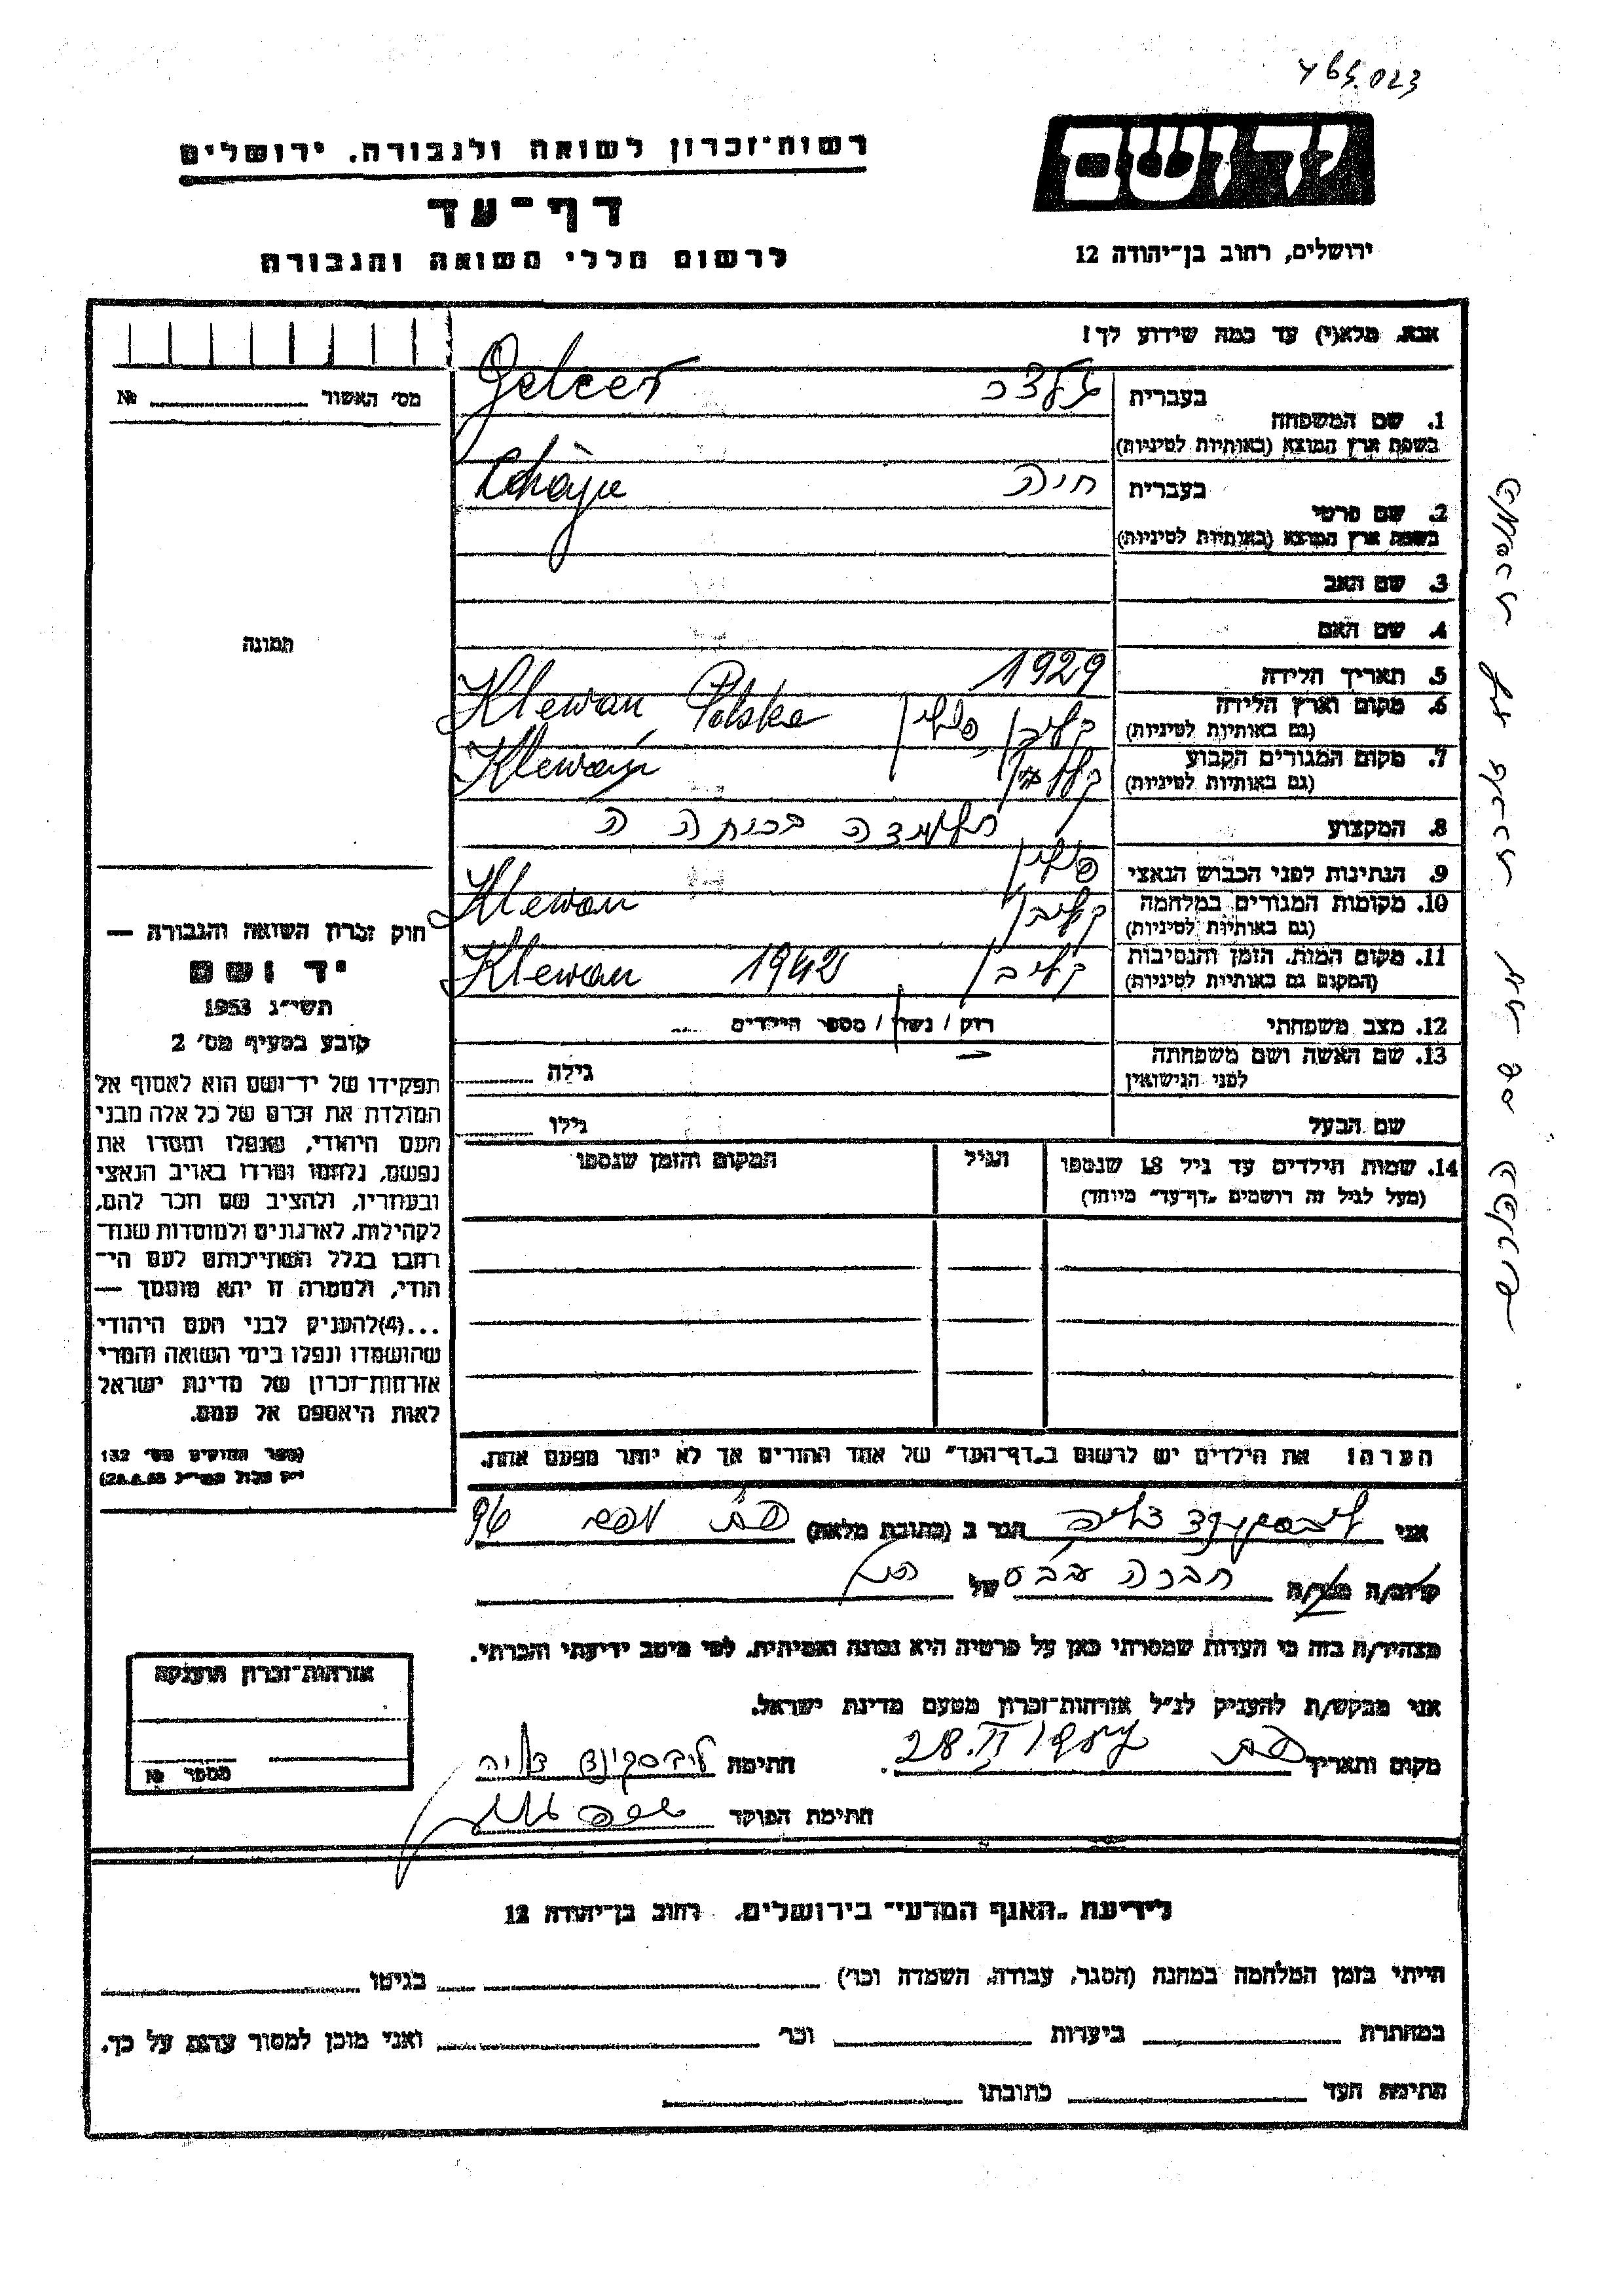 רשות־זכרון לשואה ולגבורה, ירושלים
דף־עד
לרשום חללי השואה והגבורה
יד ושם
ירושלים, רחוב בן־יהודה 12
אנא, מלא(י) עד כמה שידוע לך!
מס׳ האשור № 
1. שם המשפחה
בעברית
גלצר
Gelcer
בשפת ארץ המוצא (באותיות לטיניות)
2. שם פרטי
בעברית
חיה
Chaja
בשפת ארץ המוצא (באותיות לטיניות)
3. שם האב
4. שם האם
תמונה
5. תאריך הלידה 1929
6. מקום וארץ הלידה קליבן פולין Klewan Polska
(גם באותיות לטיניות)
7. מקום המגורים הקבוע Klewań
(גם באותיות לטיניות)
8. המקצוע תלמידה בכיתה ה
9. הנתינות לפני הכבוש הנאצי פולין
10. מקומות המגורים במלחמה קליבן Klewan
(גם באותיות לטיניות)
11. מקום המות, הזמן והנסיבות קליבן 1942 Klewan
(המקום גם באותיות לטיניות)
12. מצב משפחתי רווק / נשוי / מספר הילדים
13. שם האשה ושם משפחתה גילה
לפני הנישואין
שם הבעל גילו
14. שמות הילדים עד גיל 18 שנספו הגיל המקום והזמן שנספו
(מעל לגיל זה רושמים „דף־עד” מיוחד)
חוק זכרון השואה והגבורה —
יד ושם
תשי״ג 1953
קובע בסעיף מס׳ 2
תפקידו של יד־ושם הוא לאסוף אל
המולדת את זכרם של כל אלה מבני
העם היהודי, שנפלו ומסרו את
נפשם, נלחמו ומרדו באויב הנאצי
ובעוזריו, ולהציב שם וזכר להם,
לקהילות, לארגונים ולמוסדות שנח־
רבו בגלל השתייכותם לעם הי־
הודי, ולמטרה זו יהא מוסמך —
...(4)להעניק לבני העם היהודי
שהושמדו ונפלו בימי השואה והמרי
אזרחות־זכרון של מדינת ישראל
לאות היאספם אל עמם.
(ספר החוקים מס׳ 132
הערה! את הילדים יש לרשום ב„דף־העד” של אחד ההורים אך לא יותר מפעם אחת.
אני ליבסקינד הגר ב (כתובת מלאה) 96
קרוב/ה מכר/ה חברה של
מצהיר/ה בזה כי העדות שמסרתי כאן על פרטיה היא נכונה ואמיתית, לפי מיטב ידיעתי והכרתי.
אני מבקש/ת להעניק לנ״ל אזרחות־זכרון מטעם מדינת ישראל.
מקום ותאריך 28. חתימה ליבסקינד
חתימת הפוקד
אזרחות־זכרון הוענקה
מספר №
לידיעת „האגף המדעי” בירושלים, רחוב בן־יהודה 12
הייתי בזמן המלחמה במחנה (הסגר, עבודה, השמדה וכו׳) בגיטו
במחתרת ביערות וכו׳ ואני מוכן למסור עדות על כך.
חתימת העד כתובתו
המוסרת לא זוכרת את שם ההורים